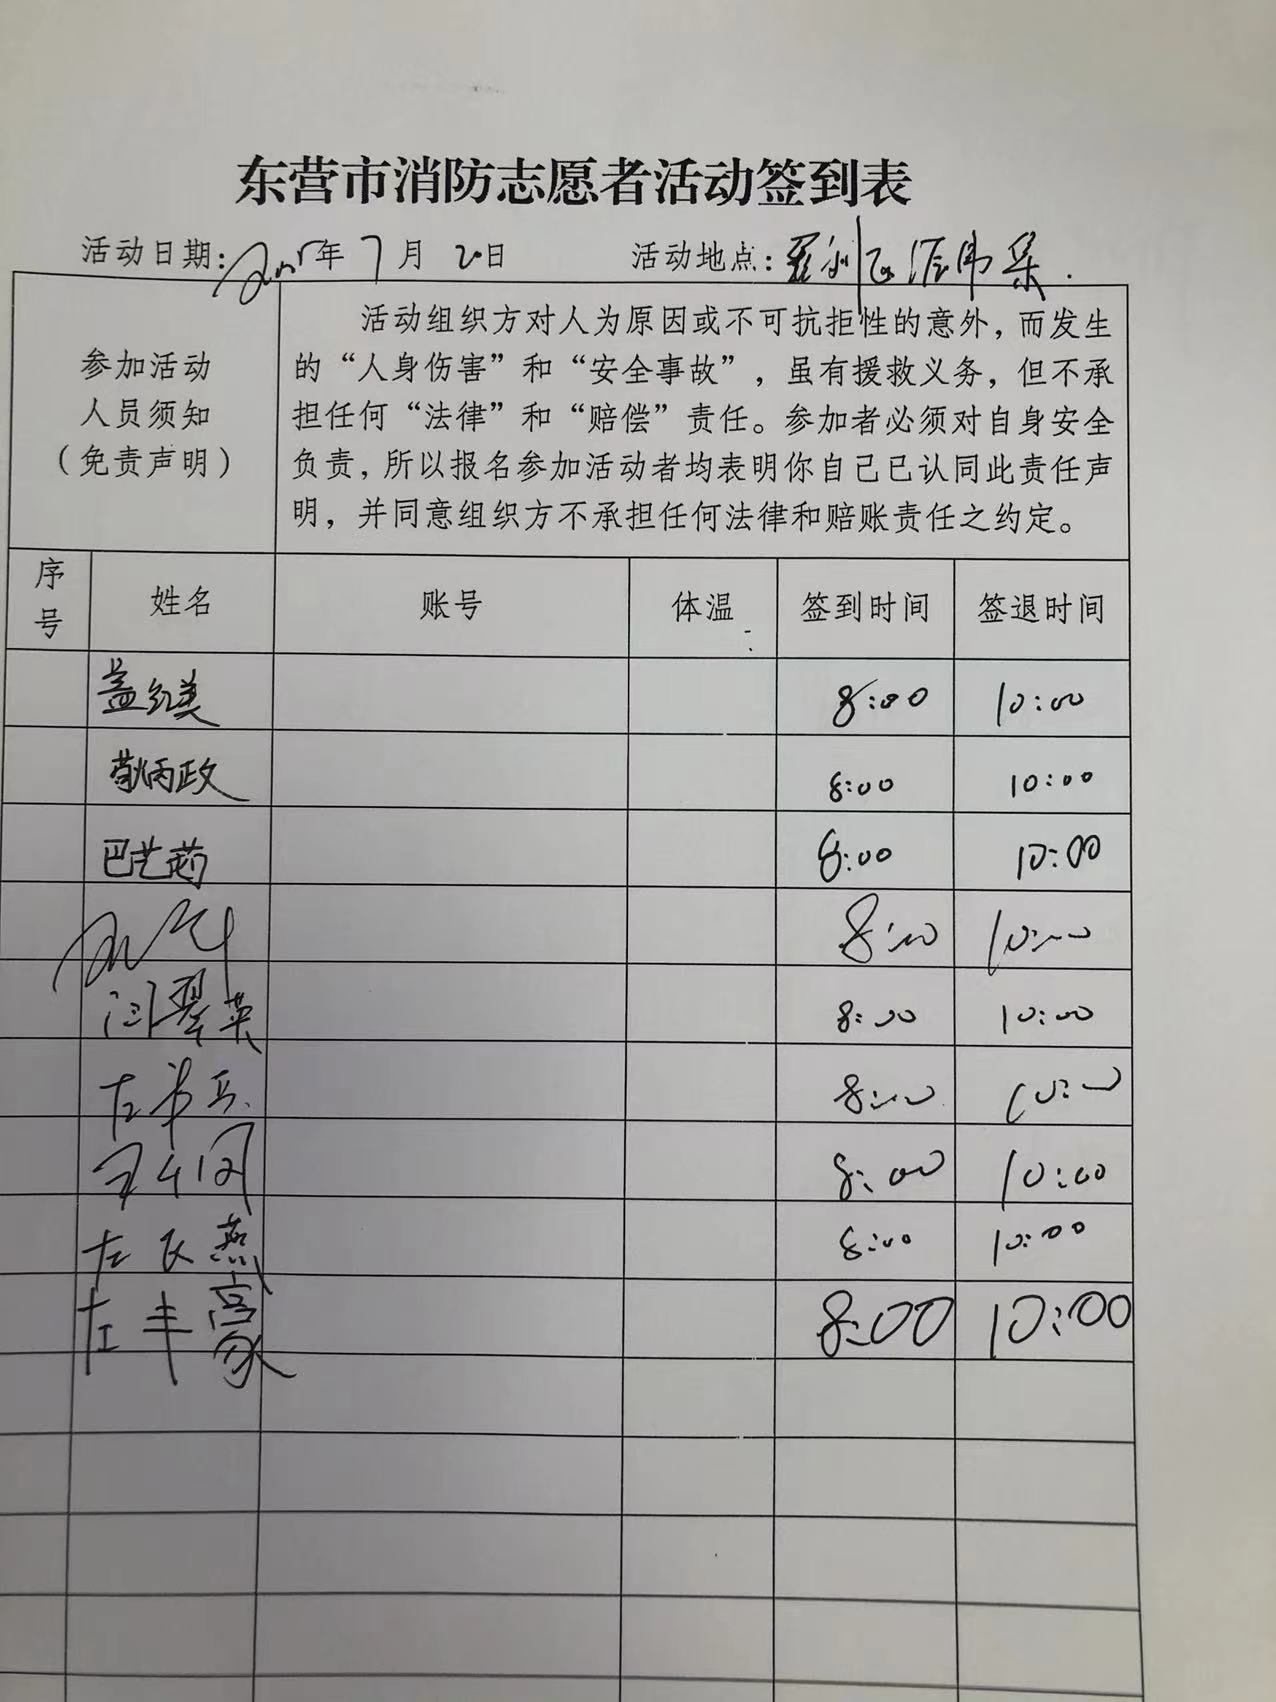 东营市消防志愿者活动签到表
活动日期: 2025年 7月 日 活动地点: 垦利区
参加活动
人员须知
（免责声明）
活动组织方对人为原因或不可抗拒性的意外，而发生
的“人身伤害”和“安全事故”，虽有援救义务，但不承
担任何“法律”和“赔偿”责任。参加者必须对自身安全
负责，所以报名参加活动者均表明你自己已认同此责任声
明，并同意组织方不承担任何法律和赔账责任之约定。
序号 姓名 账号 体温 签到时间 签退时间
盖红美 8:00 10:00
丙政 8:00 10:00
巴艺 8:00 10:00
8:00 10:00
闫翠英 8:00 10:00
左 8:00 10:00
8:00 10:00
左飞燕 8:00 10:00
左丰豪 8:00 10:00